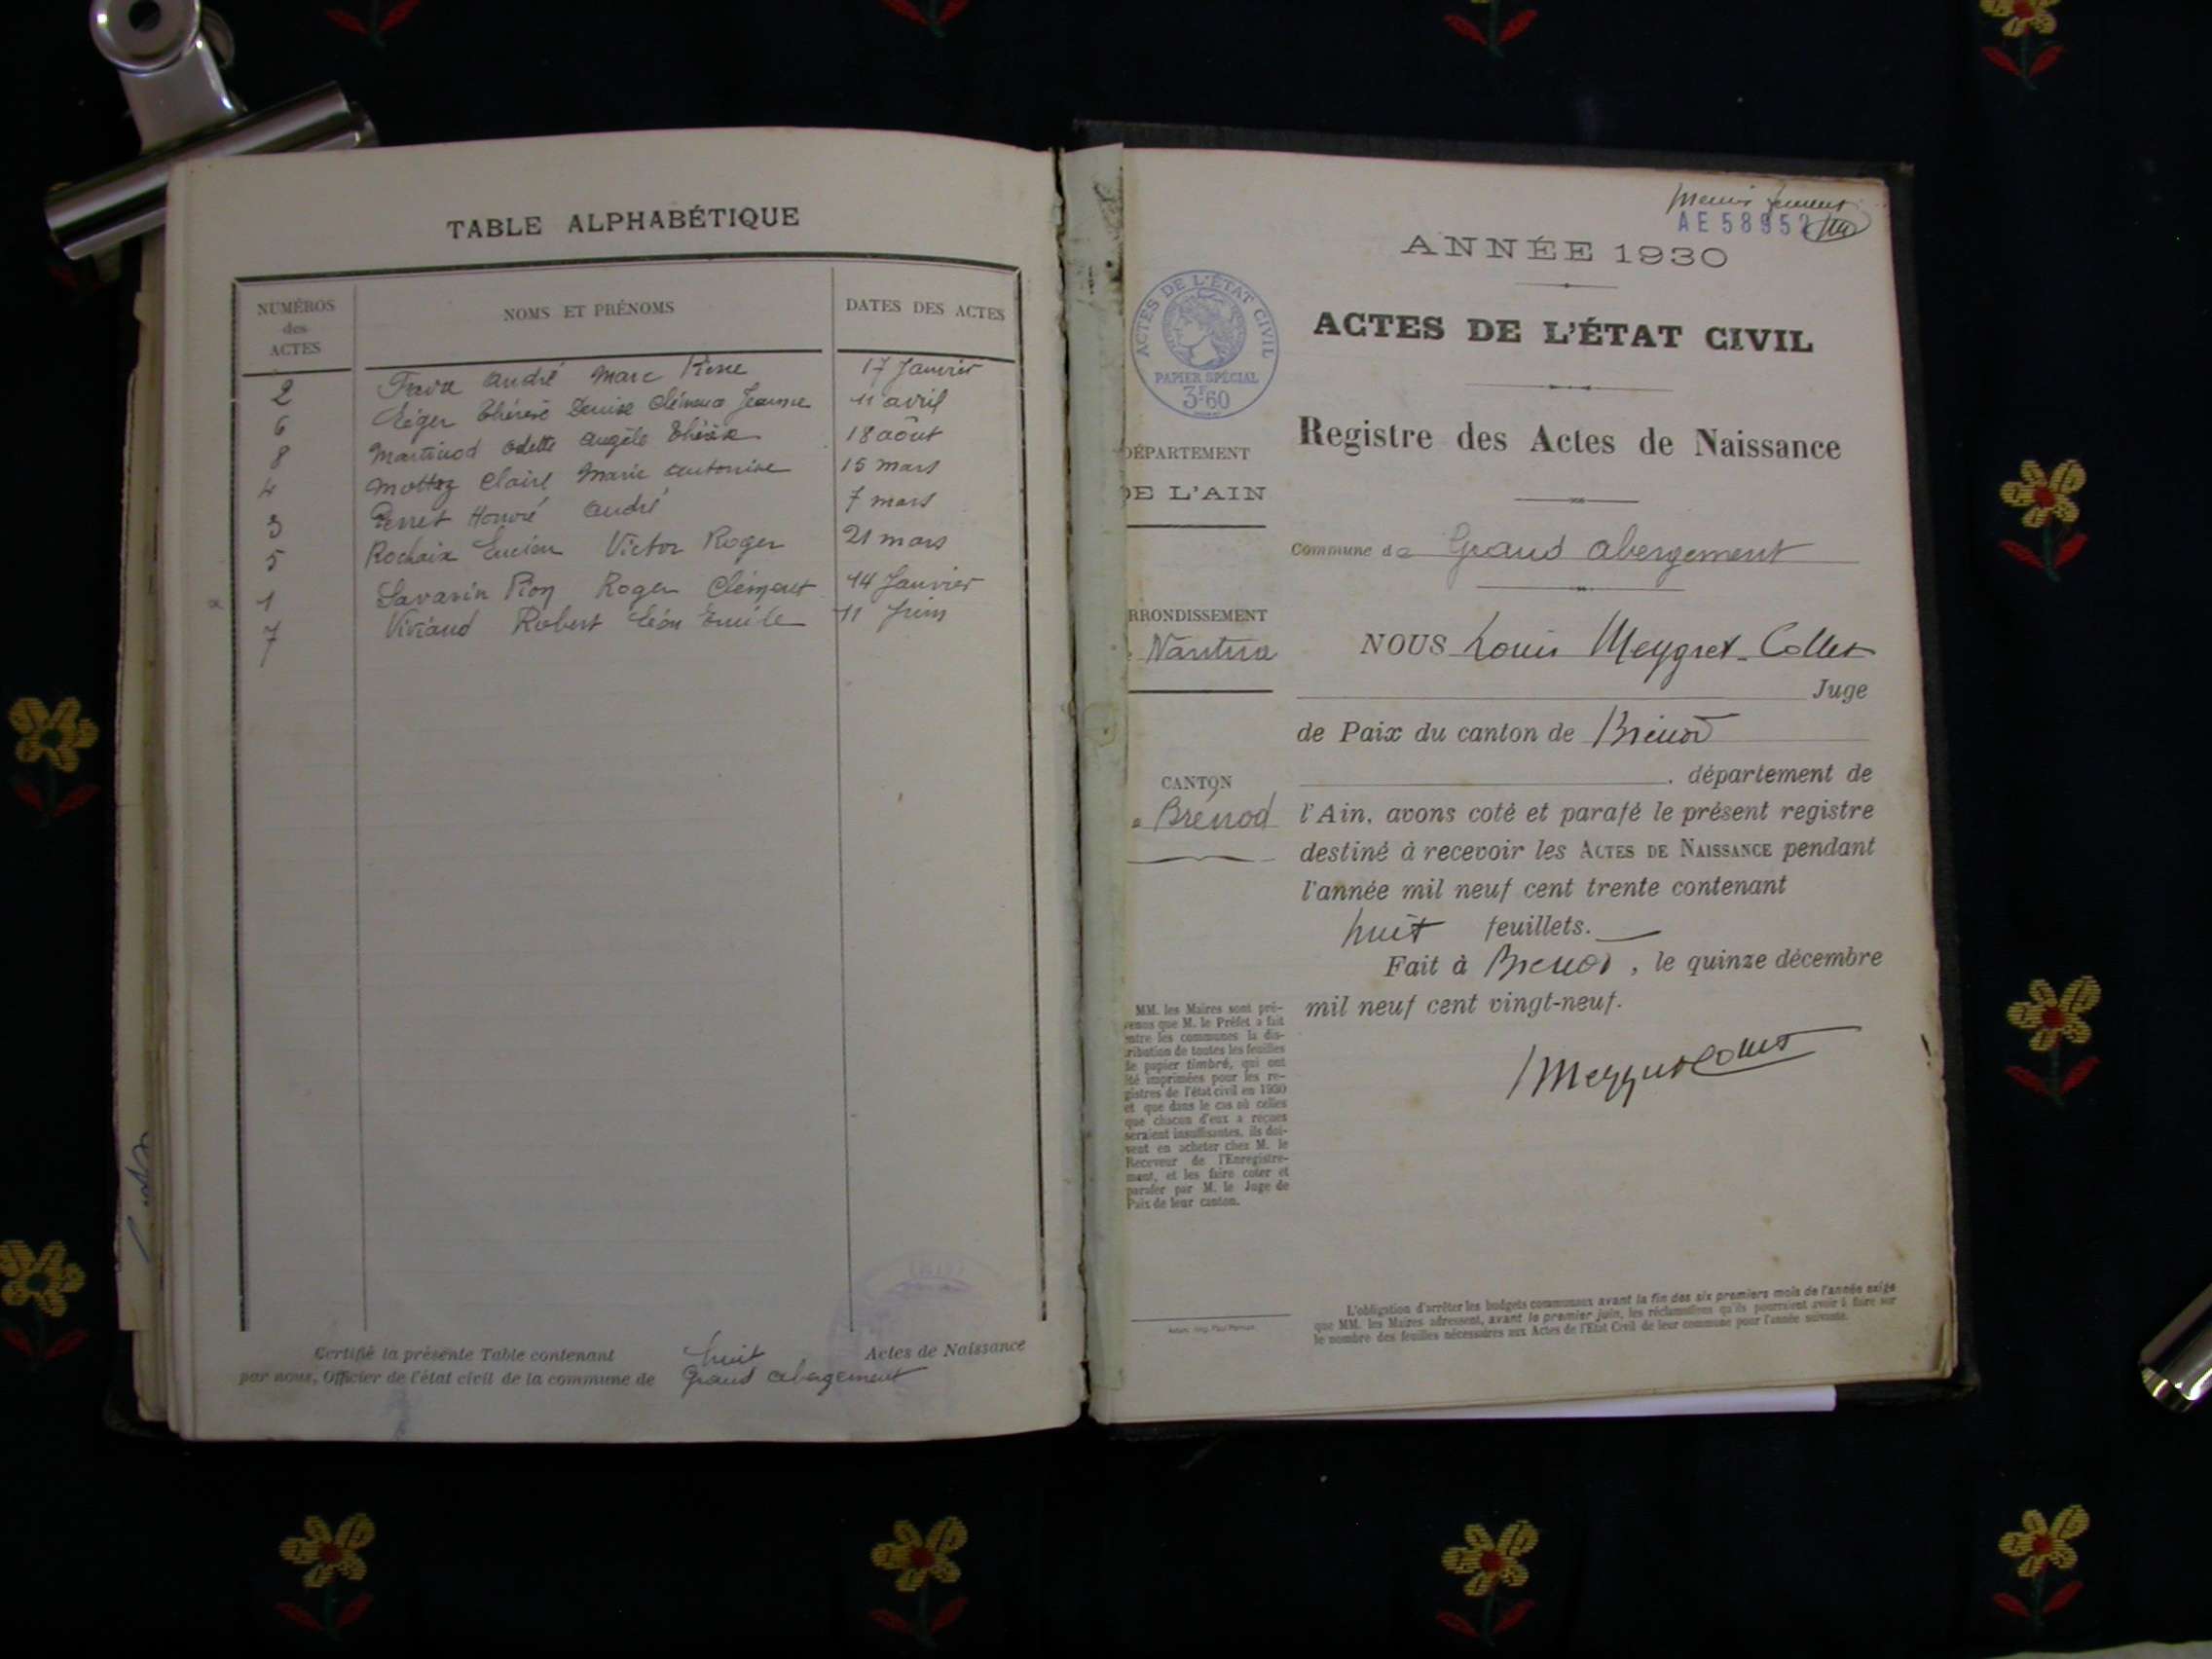 TABLE ALPHABÉTIQUE
NUMÉROS
des
ACTES
NOMS ET PRÉNOMS
DATES DES ACTES
2 Favre André Marc 17 Janvier
6 Léger Thérèse Denise Clémence Jeanne 11 avril
8 Martinod Odette Angèle 18 août
4 Mottaz Claire Marie Antonine 15 mars
3 Perret Honoré André 7 mars
5 Rochaix Lucien Victor Roger 21 mars
1 Savarin Roger Clément 14 Janvier
7 Viviand Robert Léon Emile 11 Juin
Certifié la présente Table contenant huit Actes de Naissance
par nous, Officier de l'état civil de la commune de Grand abergement
AE 58952
ANNÉE 1930
ACTES DE L'ÉTAT CIVIL
PAPIER SPÉCIAL
3F60
ACTES DE L'ÉTAT CIVIL
Registre des Actes de Naissance
DÉPARTEMENT
DE L'AIN
Commune de Grand abergement
RRONDISSEMENT
Nantua
NOUS Louis Meygret-Collet
Juge
de Paix du canton de Brénod
CANTON
Brénod
, département de
l'Ain, avons coté et parafé le présent registre
destiné à recevoir les ACTES DE NAISSANCE pendant
l'année mil neuf cent trente contenant
huit feuillets.
Fait à Brénod, le quinze décembre
mil neuf cent vingt-neuf.
Meygret Collet
MM. les Maires sont pré-
venus que M. le Préfet a fait
entre les communes la dis-
tribution de toutes les feuilles
de papier timbré, qui ont
été imprimées pour les re-
gistres de l'état civil en 1930
et que dans le cas où celles
que chacun d'eux a reçues
seraient insuffisantes, ils doi-
vent en acheter chez M. le
Receveur de l'Enregistre-
ment, et les faire coter et
parafer par M. le Juge de
Paix de leur canton.
L'obligation d'arrêter les budgets communaux avant la fin des six premiers mois de l'année exige
que MM. les Maires adressent, avant le premier juin, les réclamations qu'ils pourraient avoir à faire sur
le nombre des feuilles nécessaires aux Actes de l'État Civil de leur commune pour l'année suivante.